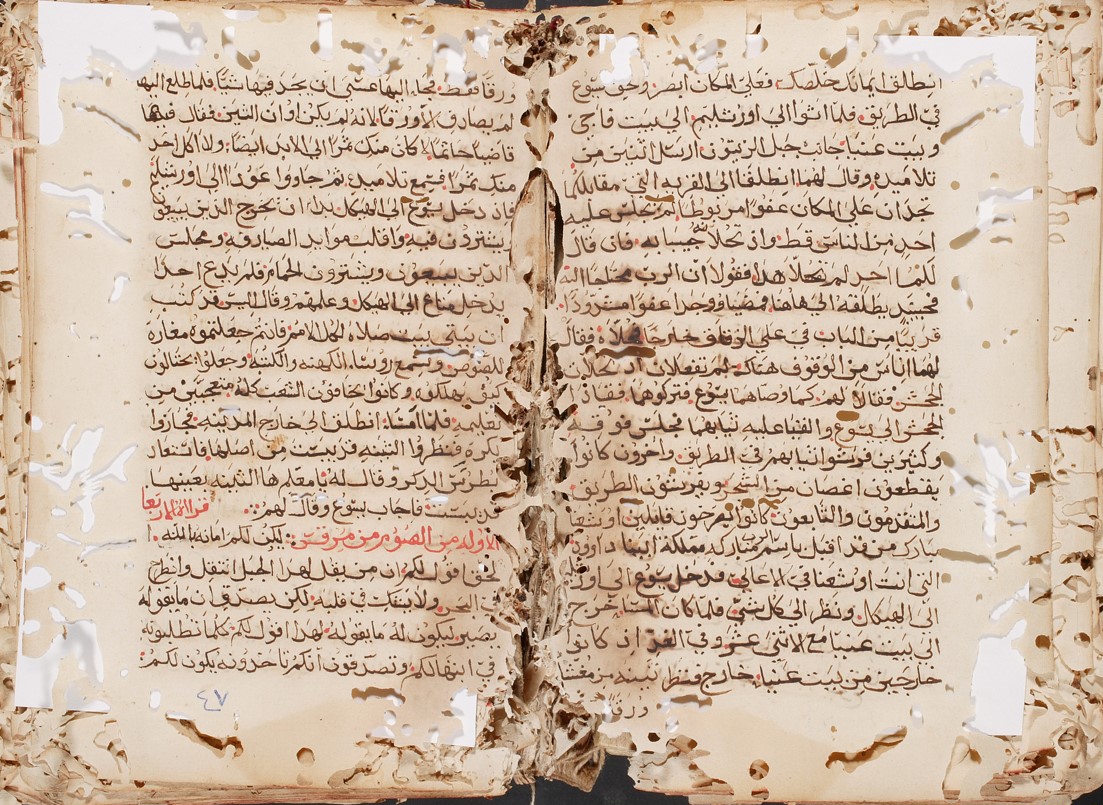 انطلق ايمانك خلصك. فعلى المكان ابصر ولحق يسوع
في الطريق. فلما اتوا الي اورشليم. الي بيت فاجي
وبيت عنيا جانب جبل الزيتون ارسل اثنين من
تلاميذه وقال لهما انطلقا الى القريه التي مقابلكما
تجدان على المكان عفوا مربوطا لم يجلس عليه
احد من الناس قط واذ تحلانه جيبا به. فان قال
لكما احد لم تحلا هذا فقولا ان الرب محتاجا اليه
فحينيذ يطلقه الي هاهنا. فمضيا ووجدا عفوا مشدودا
قريبا من الباب في على الوقاف خارجا فحلاه فقال
لهما اناس من الوقوف هناك لم تفعلان اذ تحلان
الجحش. فقالا لهم كما وصاهما يسوع. فتركوهما. فقاد
الجحش الى يسوع والقيا عليه ثيابهما فجلس فوقه
وكثيرين فرشوا ثيابهم في الطريق. واخرون كانوا
يقطعون اغصان من الشجر ويفرشون الطريق.
والمتقدمون والتابعون كانوا يصرخون قايلين اوشعنا
مبارك من قد اقبل باسم الرب مباركه مملكة ابينا داوود
التي اتت اوشعنا في الاعالي. فدخل يسوع الى اور
الى الهيكل. ونظر الى كل شي. فلما كان المسا خرج
الى بيت عنيا مع الاثنى عشر وفي الغد اذ كانوا
خارجين من بيت عنيا. خارج فنظر تينه من
ورق
ورقا فقط. فجاء اليها عسى ان يجد فيها شيا. فلما طلع اليها
لم يصادف الا ورقا. لانه لم يكن اوان التين. فقال فيها
قاضيا حاتما لا كان منك ثمرا الى الابد ايضا. ولا اكل احد
منك ثمرا. فسمع تلاميذه. ثم جاووا عودا الى اورشليم
فاذ دخل يسوع الى الهيكل بدا ان يخرج الذين يبيعون
ويشترون فيه. واقلب موايد الصيارفه ومجالس
الذين يبيعون ويشترون الحمام. فلم يدع احدا
يدخل متاع الى الهيكل وعلمهم وقال اليس قد كتب
ان بيتي بيت صلاة لكل الامم فانتم جعلتموه مغارة
للصوص. وسمع روسا الكهنه والكتبه وجعلوا يحتالون
كيف يهلكوه وكانوا يخافون الشعب كله. متعجبين من
تعليمه. فلما امسا. انطلق الى خارج المدينه. فجازوا
بكره. فنظروا التينه قد يبست من اصلها. فاستعاد
بطرس الذكر وقال له يا معلم ها التينه بعينها
قد يبست. فاجاب يسوع وقال لهم:.
الاوله من الصوم من مرقس: ليكن لكم امانه بالله.
الحق اقول لكم ان من يقل لهذا الجبل انتقل وانطرح
في البحر. ولا يشك في قلبه. لكن يصدق ان ما يقوله
يصير. ليكون له ما يقوله. لهذا اقول لكم كلما تطلبونه
في ابتهالكم. وتصدقون انكم تاخدونه يكون لكم:
٤٧